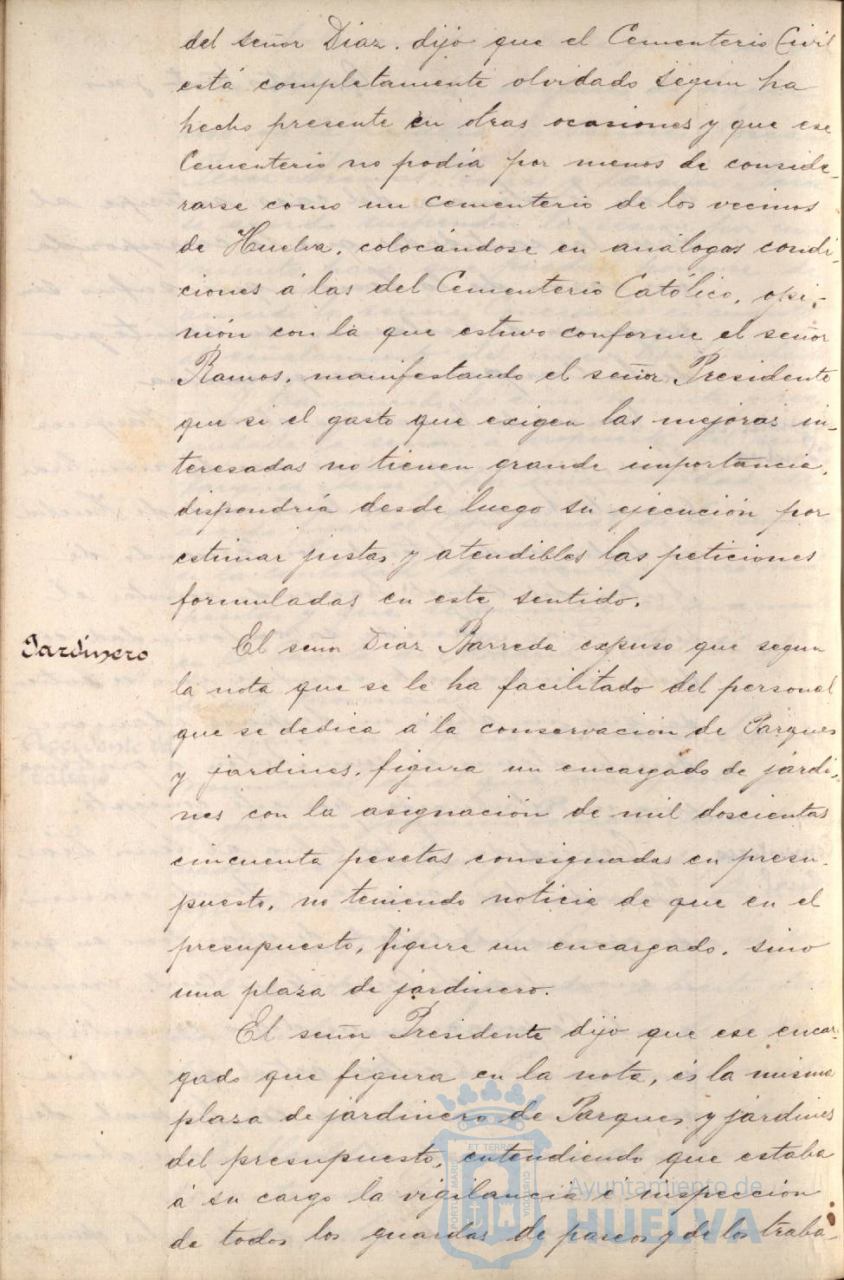 del señor Diaz, dijo que el Cementerio Civil
está completamente olvidado segun ha
hecho presente en otras ocasiones y que ese
Cementerio no podía por menos de conside-
rarse como un cementerio de los vecinos
de Huelva, colocándose en análogas condi-
ciones á las del Cementerio Católico, opi-
nión con la que estuvo conforme el señor
Ramos, manifestando el señor Presidente
que si el gasto que exigen las mejoras in-
teresadas no tienen grande importancia,
dispondría desde luego su ejecución por
estimar justas y atendibles las peticiones
formuladas en este sentido.
Jardinero
El señor Diaz Barreda expuso que segun
la nota que se le ha facilitado del personal
que se dedica á la conservación de Parques
y jardines, figura un encargado de jardi-
nes con la asignación de mil doscientas
cincuenta pesetas consignadas en presu-
puesto, no teniendo noticia de que en el
presupuesto, figure un encargado, sino
una plaza de jardinero.
El señor Presidente dijo que ese encar-
gado que figura en la nota, es la misma
plaza de jardinero de Parques y jardines
del presupuesto, entendiendo que estaba
á su cargo la vigilancia é inspección
de todos los guardas de paseos y de los traba-
ET TERRAE
PORTUS MARIS
CUSTODIA
Ayuntamiento de
HUELVA